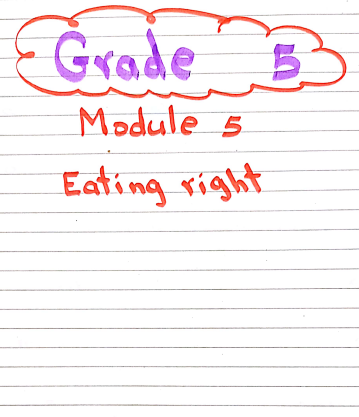 Grade 5
Module 5
Eating right